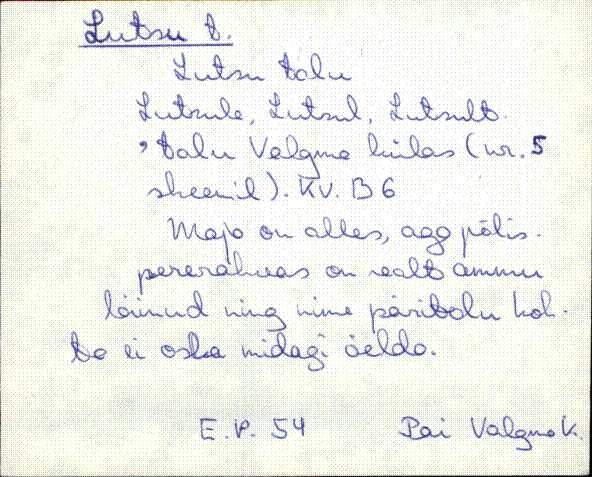 Lutsu t.
Lutsu talu
Lutsule, Lutsul, Lutsult.
, talu Valgma külas (nr. 5
skeemil). KV. B 6
Maja on alles, aga põlis-
pererahvas on sealt ammu
läinud ning nime päritolu koh-
ta ei oska midagi öelda.
E.P. 54 Pai Valgma k.